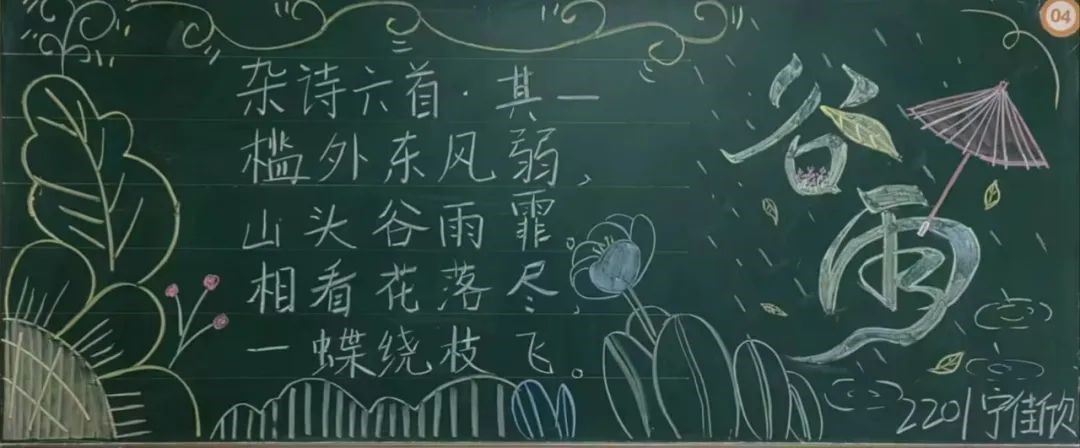 杂诗六首·其一
槛外东风弱，
山头谷雨霏。
相看花落尽，
一蝶绕枝飞。
谷雨
04
2201宁佳欣